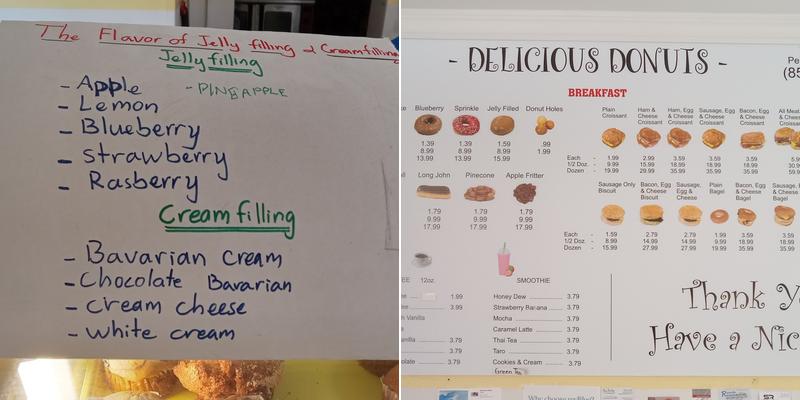 The Flavor of Jelly filling & Creamfilling
Jelly filling
- Apple
- PINEAPPLE
- Lemon
- Blueberry
- strawberry
- Rasberry
Cream filling
- Bavarian cream
- Chocolate Bavarian
- cream cheese
- white cream
- DELICIOUS DONUTS -
(85
BREAKFAST
Blueberry Sprinkle Jelly Filled Donut Holes
1.39 1.39 1.59 .99
8.99 8.99 8.99 1.99
13.99 13.99 15.99
Plain Croissant
Ham & Cheese Croissant
Ham, Egg & Cheese Croissant
Sausage, Egg & Cheese Croissant
Bacon, Egg & Cheese Croissant
All Meat
Each - 1.99 2.99 3.59 3.59 3.59
1/2 Doz. - 9.99 15.99 18.99 18.99 18.99
Dozen - 19.99 29.99 35.99 35.99 35.99
Long John Pinecone Apple Fritter
1.79 1.79 1.79
9.99 9.99 9.99
17.99 17.99 17.99
Sausage Only Biscuit
Bacon, Egg & Cheese Biscuit
Sausage, Egg & Cheese
Plain Bagel
Bacon, Egg & Cheese Bagel
Sausage, & Cheese Bagel
Each - 1.59 2.79 2.79 1.99 3.59 3.59
1/2 Doz. - 8.99 14.99 14.99 9.99 18.99 18.99
Dozen - 15.99 27.99 27.99 19.99 35.99 35.99
12oz.
1.99
3.99
Vanilla
3.79
3.79
3.79
SMOOTHIE
Honey Dew 3.79
Strawberry Banana 3.79
Mocha 3.79
Caramel Latte 3.79
Thai Tea 3.79
Taro 3.79
Cookies & Cream 3.79
Green Tea
Thank Yo
Have a Nic